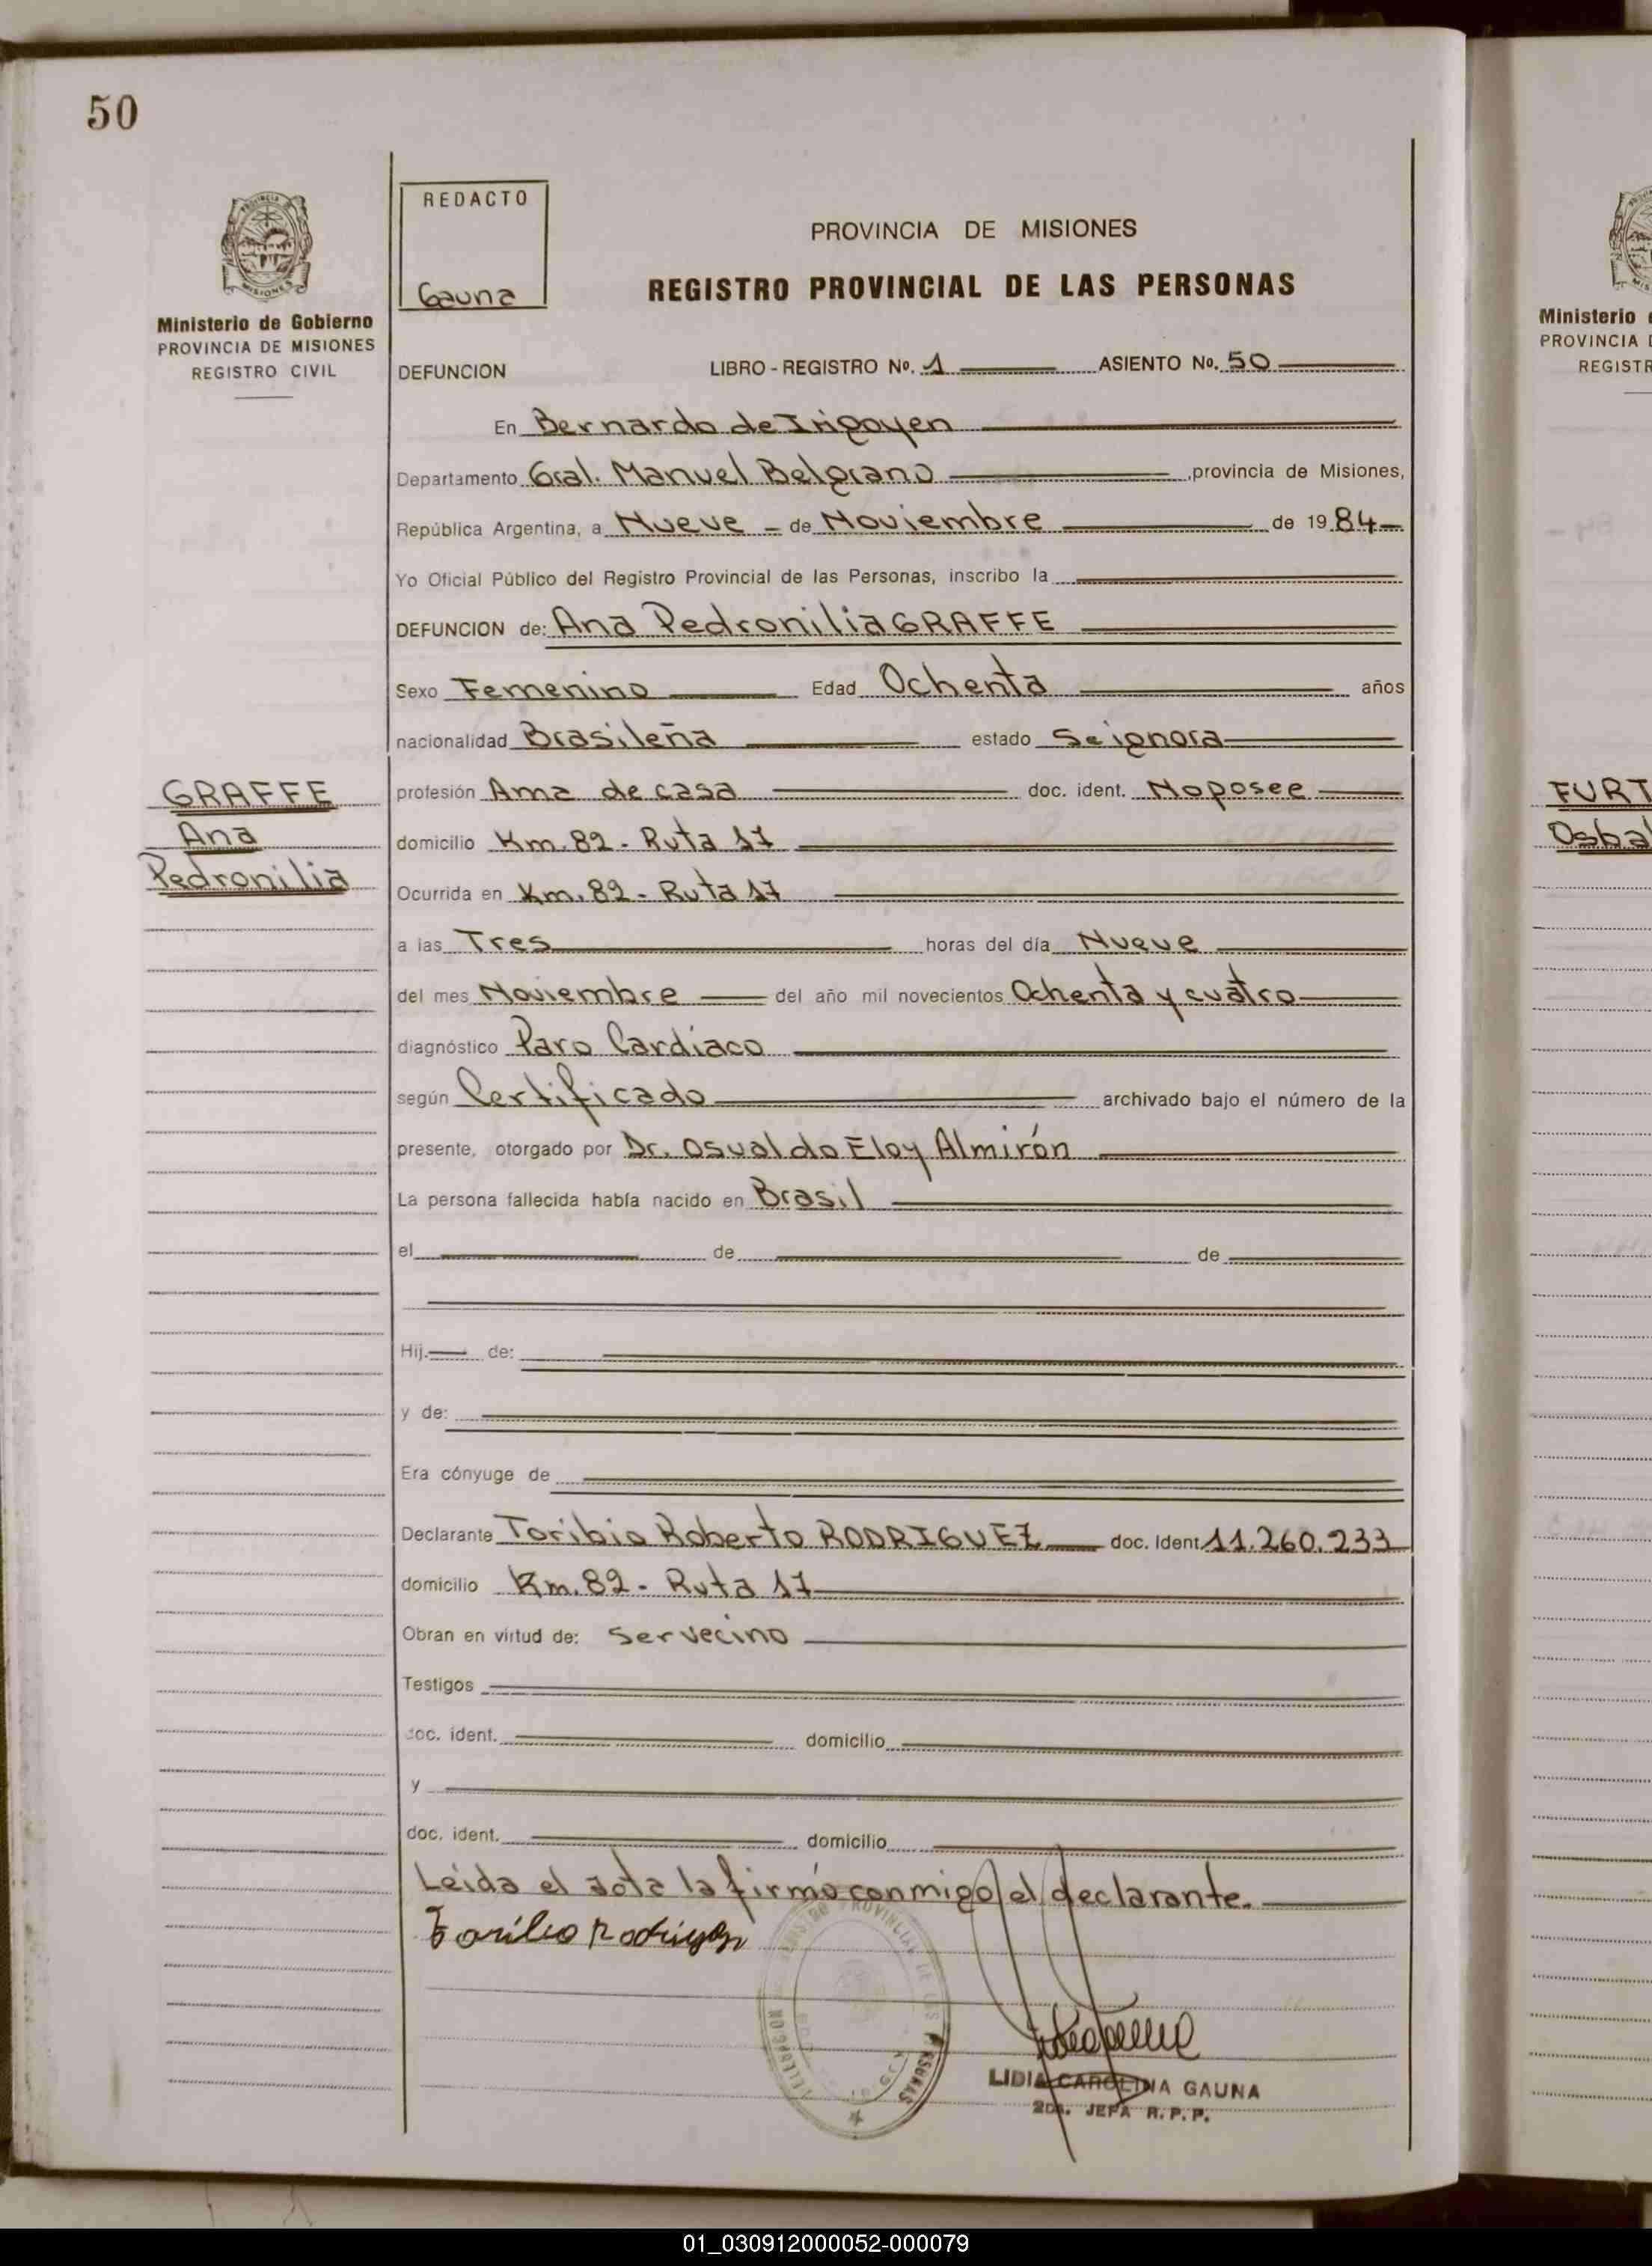 50
REDACTO
Gauna
PROVINCIA DE MISIONES
REGISTRO PROVINCIAL DE LAS PERSONAS
Ministerio de Gobierno
PROVINCIA DE MISIONES
REGISTRO CIVIL
DEFUNCION LIBRO - REGISTRO Nº. 1 ASIENTO No. 50
En Bernardo de Irigoyen
Departamento Gral. Manuel Belgrano, provincia de Misiones,
República Argentina, a Nueve - de Noviembre de 1984
Yo Oficial Público del Registro Provincial de las Personas, inscribo la
DEFUNCION de: Ana Pedronilia GRAFFE
Sexo Femenino Edad Ochenta años
nacionalidad Brasileña estado Se ignora
GRAFFE
Ana
Pedronilia
profesión Ama de casa doc. ident. No posee
domicilio Km. 82 - Ruta 17
Ocurrida en Km. 82 - Ruta 17
a las Tres horas del día Nueve
del mes Noviembre del año mil novecientos Ochenta y cuatro
diagnóstico Paro Cardíaco
según Certificado archivado bajo el número de la
presente, otorgado por Dr. Osvaldo Eloy Almirón
La persona fallecida había nacido en Brasil
el de de
Hij. de:
y de:
Era cónyuge de
Declarante Toribio Roberto RODRIGUEZ doc. Ident 11.260.233
domicilio Km. 82 - Ruta 17
Obran en virtud de: Ser vecino
Testigos
doc. ident. domicilio
y
doc. ident. domicilio
Leída el acta la firmó conmigo el declarante.
LIDIA CAROLINA GAUNA
2da. JEFA R.P.P.
Ministerio
PROVINCIA
REGISTR
FURT
Osbal
01_030912000052-000079